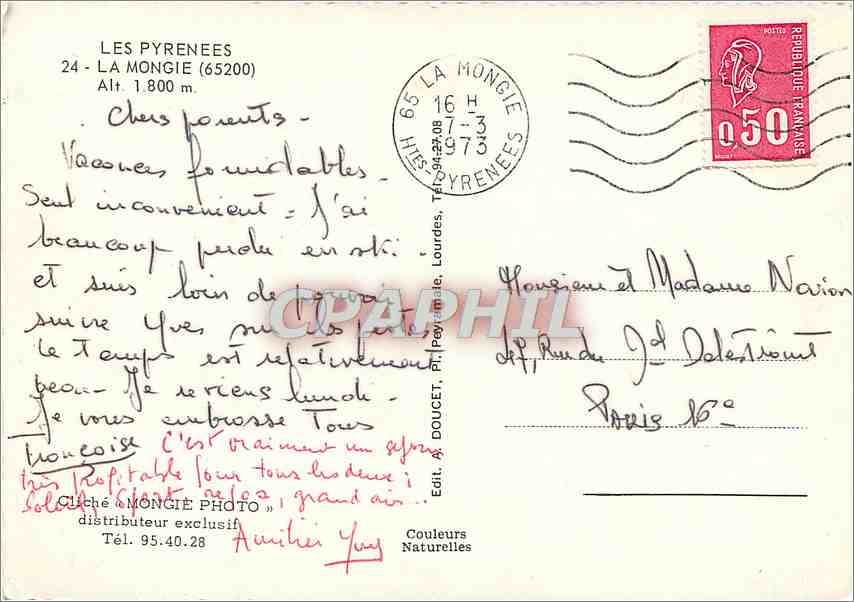 LES PYRENEES
24 - LA MONGIE (65200)
Alt. 1.800 m.
Chers parents -
Vacances formidables -
Seul inconvenient = J'ai
beaucoup perdu en ski -
et suis loin de pouvoir
suivre Yves sur les pistes
Le Temps est relativement
beau - Je reviens lundi -
Je vous embrasse Tous
Françoise
C'est vraiment un séjour
très profitable pour tous les deux ;
Soleil, Sport, repos, grand air..
Amitiés Yves
Cliché « MONGIE PHOTO »
distributeur exclusif
Tél. 95.40.28
Couleurs
Naturelles
Edit. A. DOUCET, Pl. Peyramale, Lourdes, Tél. 94-27-08
65 LA MONGIE
16 H
7-3
1973
HTES-PYRENEES
POSTES
REPUBLIQUE FRANÇAISE
0,50
BEQUET
Monsieur et Madame Navion
47, Rue du Gal Delestraint
PARIS 16e
CPAPHIL